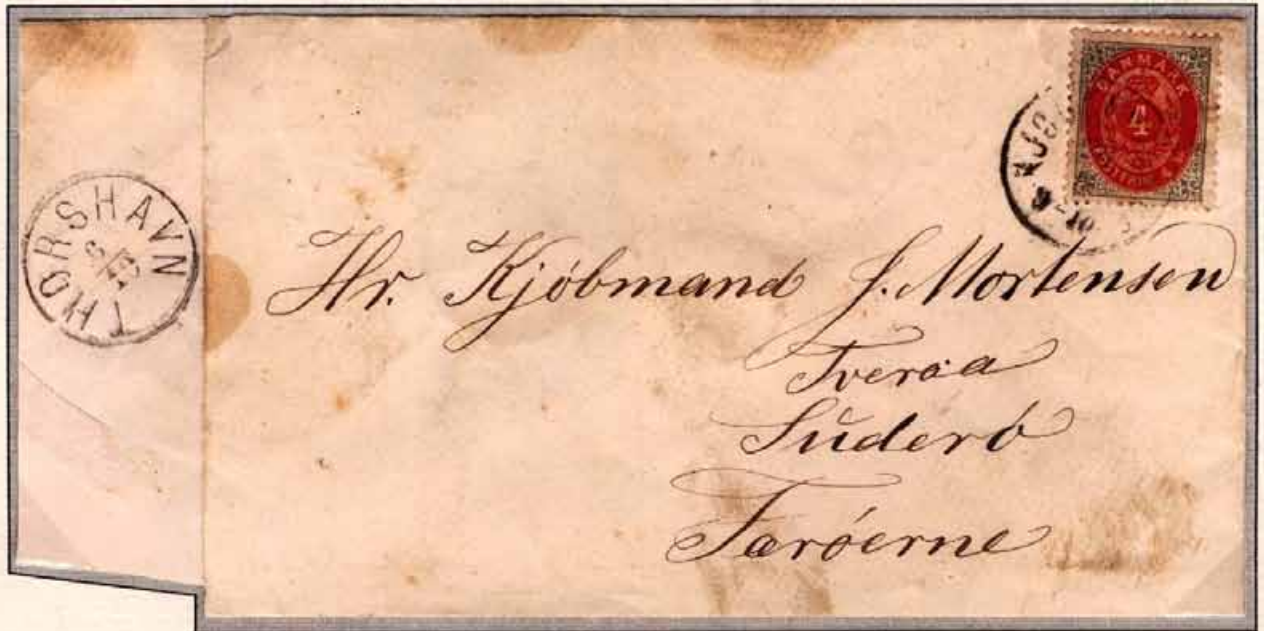 THORSHAVN
6/10
DANMARK
4
Hr. Kjöbmand J. Mortensen
Tveraa
Suderö
Færöerne